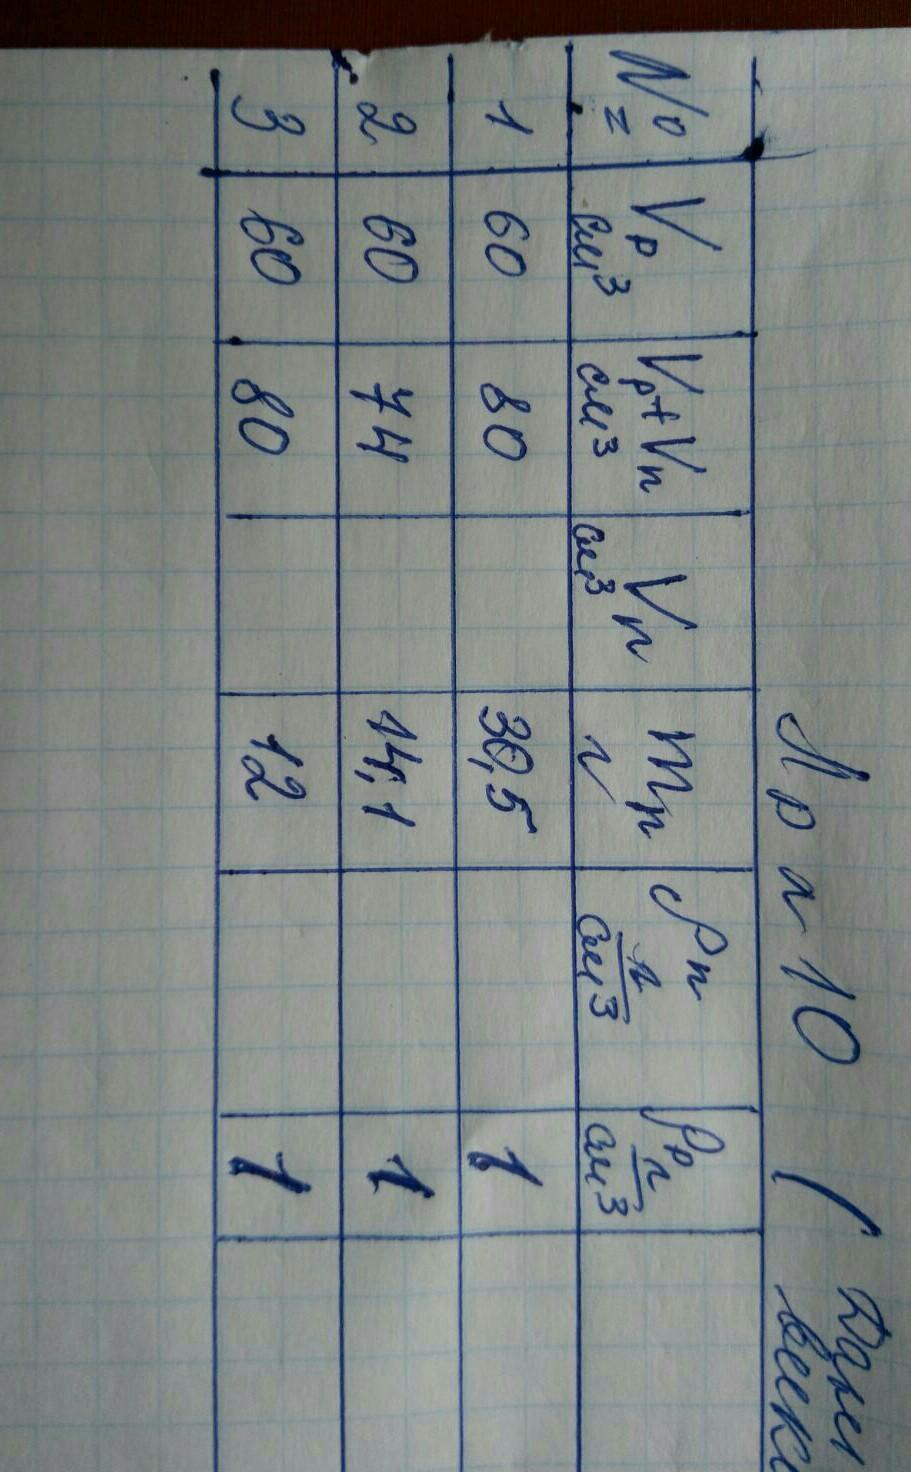 Л р № 10 (
№ Vр см³ Vр+Vп см³ Vп см³ mп г ρп г/см³ ρр г/см³
1 60 80 30,5 1
2 60 74 14,1 1
3 60 80 12 1